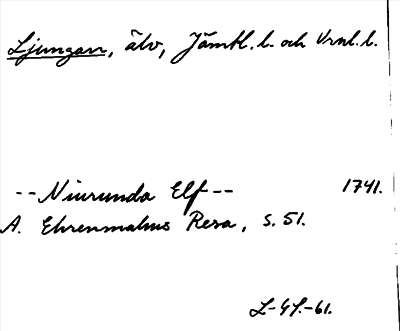 Ljungan, älv, Jämtl. l. och Vrnl. l.
-- Niurunda Elf -- 1741.
A. Ehrenmalms Resa, s. 51.